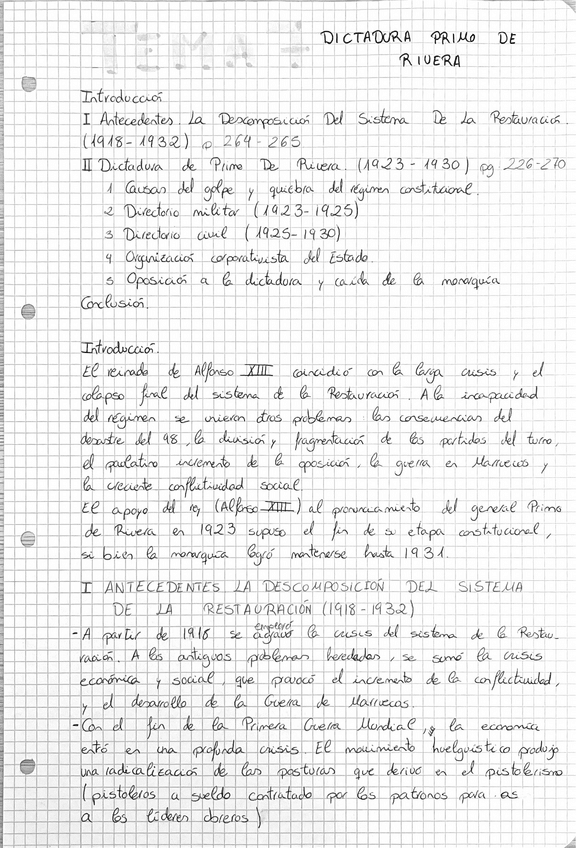 TEMA 7
DICTADURA PRIMO DE
RIVERA
Introducción
I Antecedentes. La Descomposición Del Sistema De La Restauración.
(1918-1932) p 264-265
II Dictadura de Primo De Rivera. (1923-1930) pg. 226-270
1 Causas del golpe y quiebra del régimen constitucional.
2 Directorio militar (1923-1925)
3 Directorio civil (1925-1930)
4 Organización corporativista del Estado.
5 Oposición a la dictadura y caída de la monarquía
Conclusión.
Introducción.
El reinado de Alfonso XIII coincidió con la larga crisis y el
colapso final del sistema de la Restauración. A la incapacidad
del régimen se unieron otros problemas las consecuencias del
desastre del 98, la división y fragmentación de los partidos del turno,
el paulatino incremento de la oposición, la guerra en Marruecos y
la creciente conflictividad social
El apoyo del rey (Alfonso XIII) al pronunciamiento del general Primo
de Rivera en 1923 supuso el fin de su etapa constitucional,
si bien la monarquía logró mantenerse hasta 1931.
I ANTECEDENTES LA DESCOMPOSICIÓN DEL SISTEMA
DE LA RESTAURACIÓN (1918-1932)
- A partir de 1918 se agravó empeoró la crisis del sistema de la Restau-
ración. A los antiguos problemas heredados, se sumó la crisis
económica y social, que provocó el incremento de la conflictividad,
y el desarrollo de la Guerra de Marruecos.
- Con el fin de la Primera Guerra Mundial, la economía
entró en una profunda crisis. El movimiento huelguístico produjo
una radicalización de las posturas que derivó en el pistolerismo
(pistoleros a sueldo contratado por los patronos para as
a los líderes obreros)